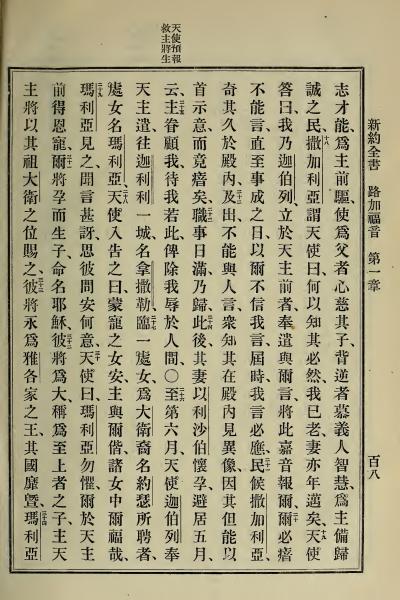 新約全書 路加福音 第一章 百八
天使預報
救主將生
志才能、爲主前驅、使爲父者心慈其子、背逆者慕義人智慧、爲主備歸
誠之民、十八撒加利亞謂天使曰、何以知其必然、我已老、妻亦年邁矣、十九天使
答曰、我乃迦伯列、立於天主前者、奉遣與爾言、將此嘉音報爾、二十爾必瘖
不能言、直至事成之日、以爾不信我言、屆時我言必應、二十一民候撒加利亞、
奇其久於殿內、二十二及出、不能與人言、衆知其在殿內見異像、因其但能以
首示意、而竟瘖矣、二十三職事日滿乃歸、二十四此後其妻以利沙伯懷孕、避居五月、
云、二十五主眷顧我、待我若此、俾除我辱於人間、〇二十六至第六月、天使迦伯列奉
天主遣、往迦利利一城、名拿撒勒、二十七臨一處女、爲大衛裔名約瑟所聘者、
處女名瑪利亞、二十八天使入告之曰、蒙寵之女安、主與爾偕、諸女中爾福哉、
二十九瑪利亞見之、聞言甚訝、思彼問安何意、三十天使曰、瑪利亞勿懼、爾於天主
前得恩寵、三十一爾將孕而生子、命名耶穌、三十二彼將爲大、稱爲至上者之子、主天
主將以其祖大衛之位賜之、三十三彼將永爲雅各家之王、其國靡曁、三十四瑪利亞